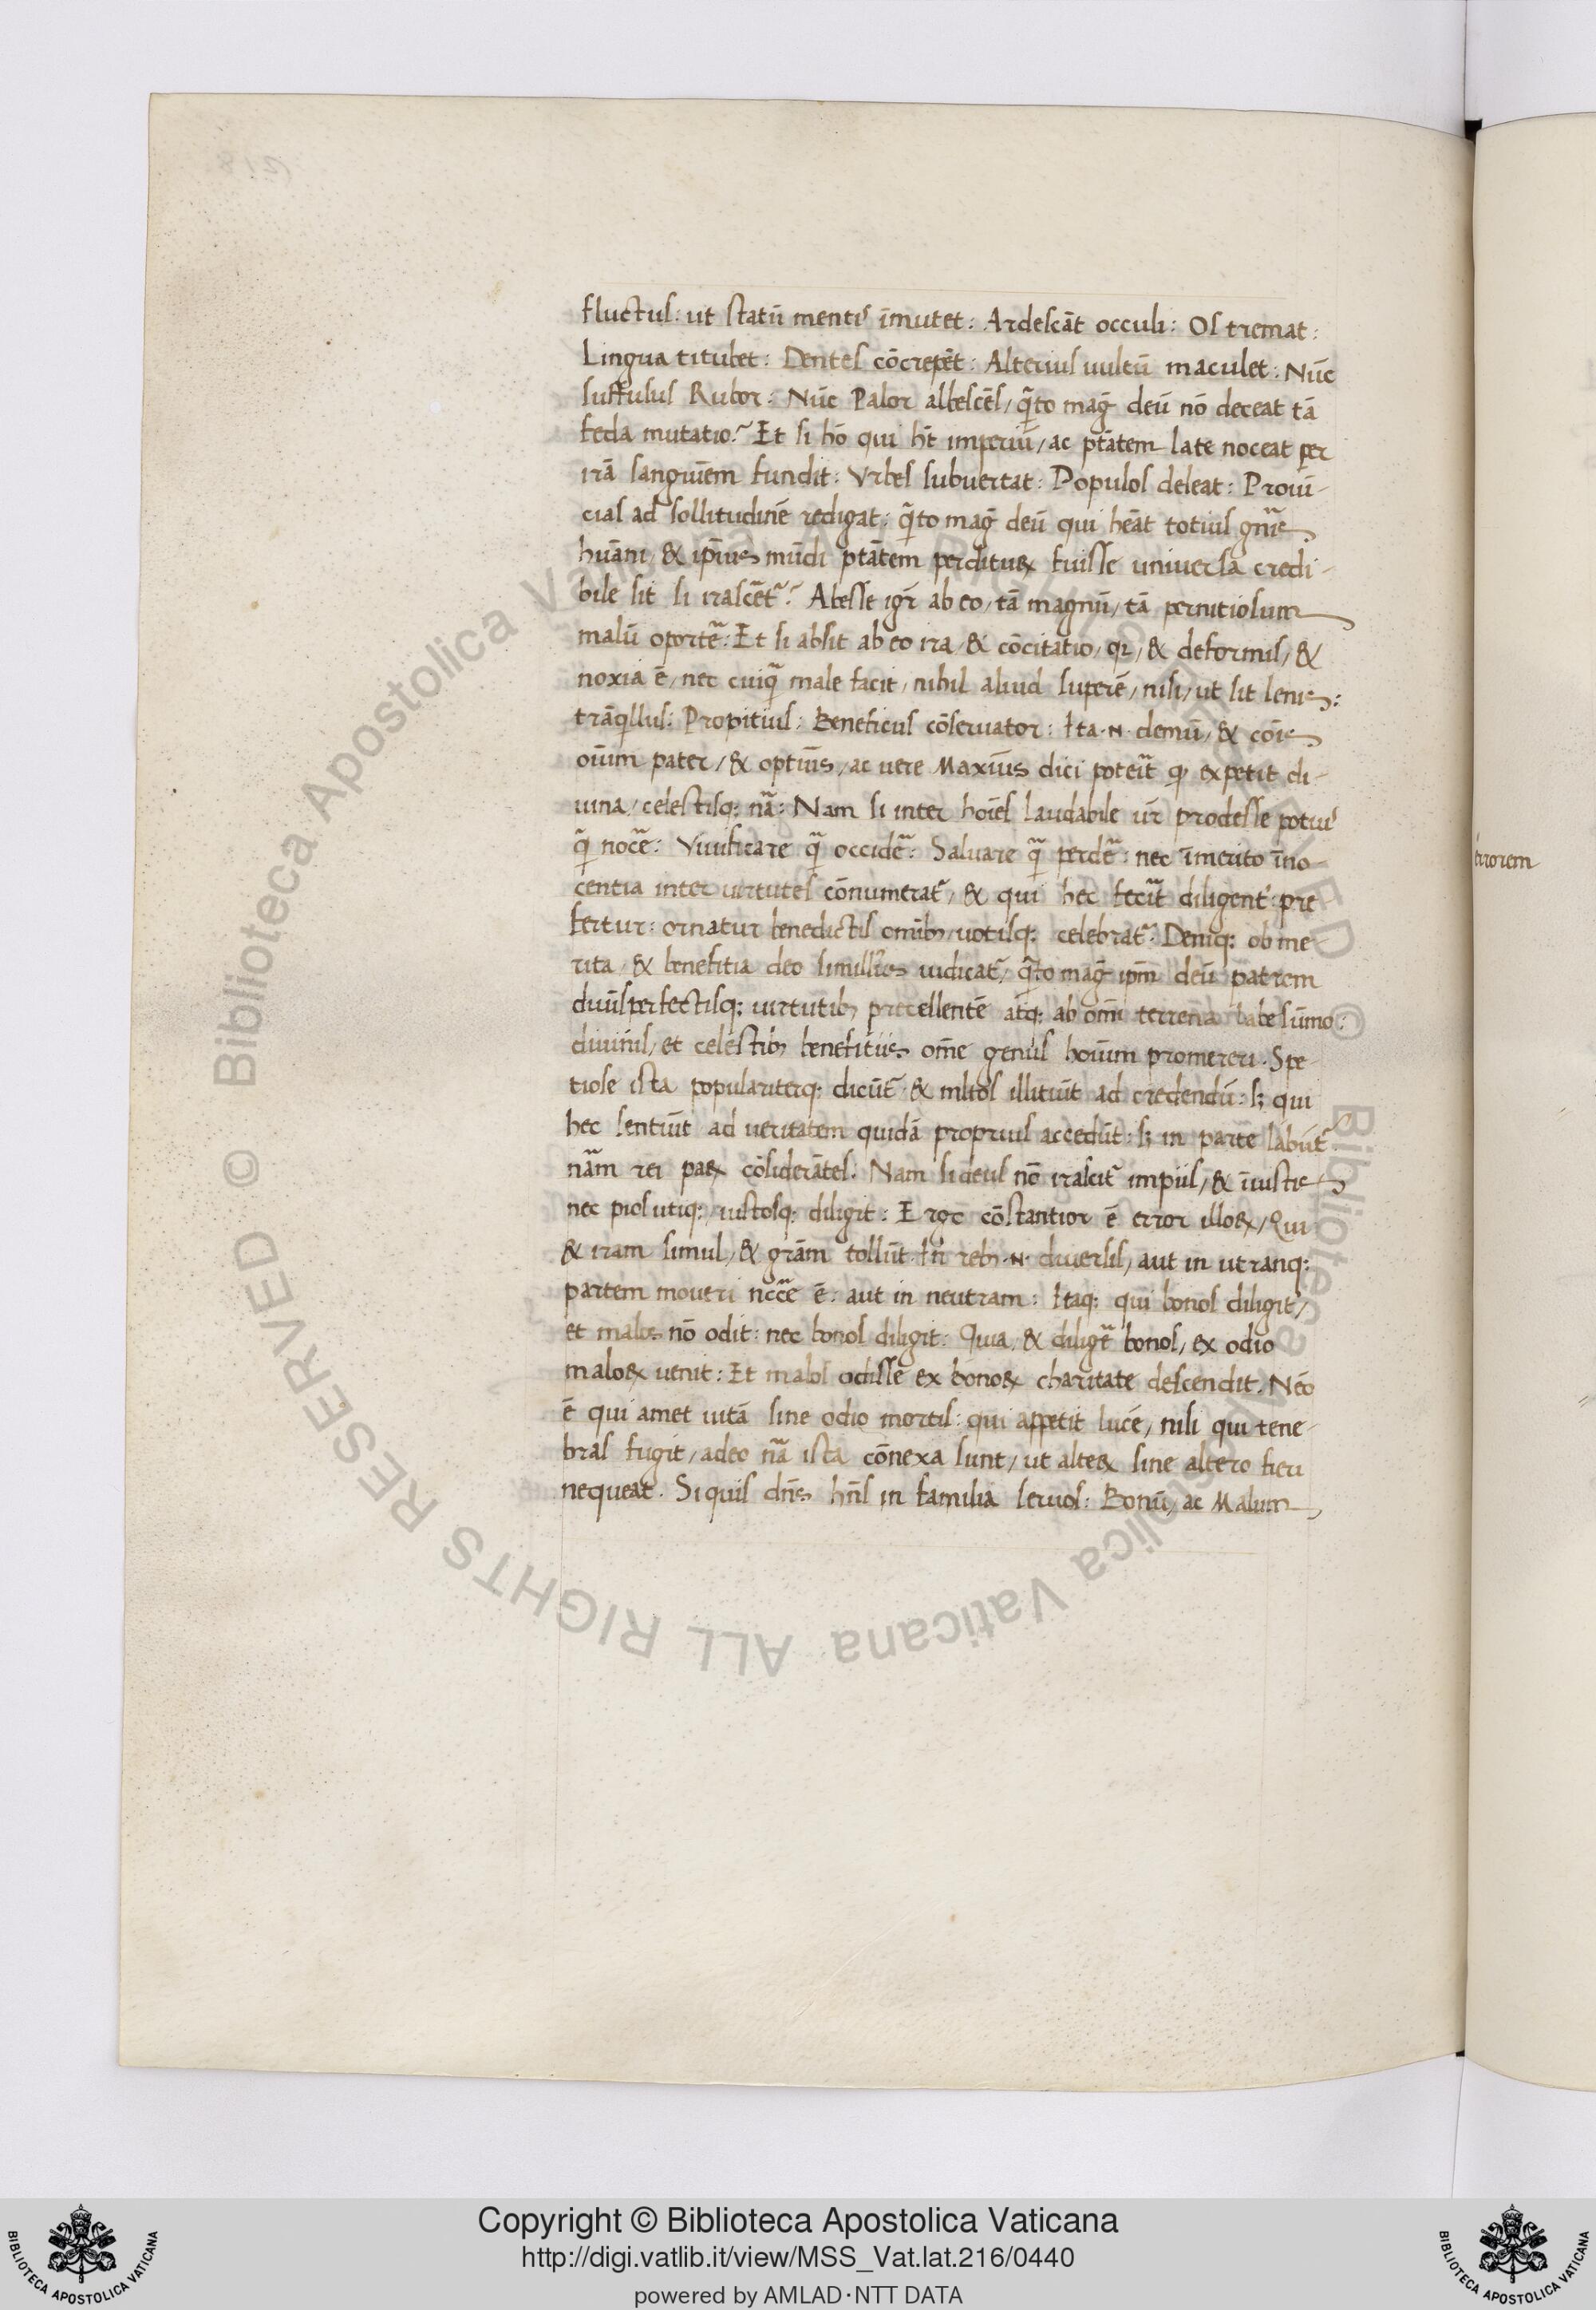 fluctus: ut statū mentis īmutet: Ardescāt occuli: Os tremat:
Lingua titubet: Dentes cōcrepēt: Alterius uultū maculet: Nūc
suffusus Rubor: Nūc Palor albescēs/ q̄to maḡ deū nō deceat tā
feda mutatio? Et si hō qui ht̄ imperiū/ ac ptātem late noceat per
irā sanguīem fundit: Vrbes subuertat: Populos deleat: Prouī-
cias ad sollitudinē redigat: q̄to maḡ deū qui heāt totius gn̄is
huāni/ & ip̄ius mūdi ptātem perditurꝝ fuisse uniuersa credi-
bile sit si irascēt᷑? Abesse igr̄ ab eo/ tā magnū/ tā pernitiosum
malū oportē: Et si absit ab eo ira/ & cōcitatio/ qꝛ/ & deformis/ &
noxia ē/ nec cuiq̄ male facit/ nihil aliud superē/ nisi/ ut sit lenis:
trāqllus: Propitius: Beneficus cōseruator: Ita .N. demū/ & cōis
oīum pater/ & optimūs/ ac uere Maxīus dici poteīt qꝫ expetit di-
uina/ celestisqꝫ nā: Nam si inter hoīes laudabile ur̄ prodesse potius
q̄ nocē: Viuificare q̄ occidē: Saluare q̄ perdē: nec īmerito īno-
centia inter uirtutes cōnumerat᷑/ & qui hec fecit̄ diligent᷑: pre
fertur: ornatur benedictis omībꝫ uotisqꝫ celebrat᷑. Deniqꝫ ob me-
rita/ & benefitia deo simillīus iudicat᷑/ q̄to maḡ ipm̄ deū patrem
diuīs perfectisqꝫ uirtutibꝫ precellentē atqꝫ ab omī terrena labe sūmo:
diuinis/ et celestibꝫ benefitiis omē genus hoīum promereri. Spe-
tiose ista populariterqꝫ dicūt᷑ & mltos illitiūt ad credendū: sꝫ qui
hec sentiūt ad ueritatem quidā proprius accedūt: sꝫ in parte labūt᷑
nām rei parꝝ cōsiderātes. Nam si deus nō irascit᷑ impiis/ & iniustis
nec pios utiqꝫ/ iustosqꝫ diligit: Ergo cōstantior ē error illorꝝ/ Qui
& iram simul/ & grām tollūt. In rebꝫ .N. diuersis/ aut in utranqꝫ
partem moueri nccē ē: aut in neutram: Itaqꝫ qui bonos diligit/
et malos nō odit: nec bonos diligit: Quia/ & diligē bonos/ ex odio
malorꝝ uenit: Et malos odisse ex bonorꝝ charitate descendit. Nēo
ē qui amet uitā sine odio mortis: qui appetit lucē/ nisi qui tene-
bras fugit/ adeo nā ista cōnexa sunt/ ut alterꝝ sine altero fieri
nequeat. Si quis dn̄s hn̄s in familia seruos: Bonū/ ac Malum
errorem
© Biblioteca Apostolica Vaticana ALL RIGHTS RESERVED © Biblioteca Apostolica Vaticana ALL RIGHTS RESERVED
Copyright © Biblioteca Apostolica Vaticana
http://digi.vatlib.it/view/MSS_Vat.lat.216/0440
powered by AMLAD·NTT DATA
BIBLIOTECA APOSTOLICA VATICANA
BIBLIOTECA APOSTOLICA VATICANA